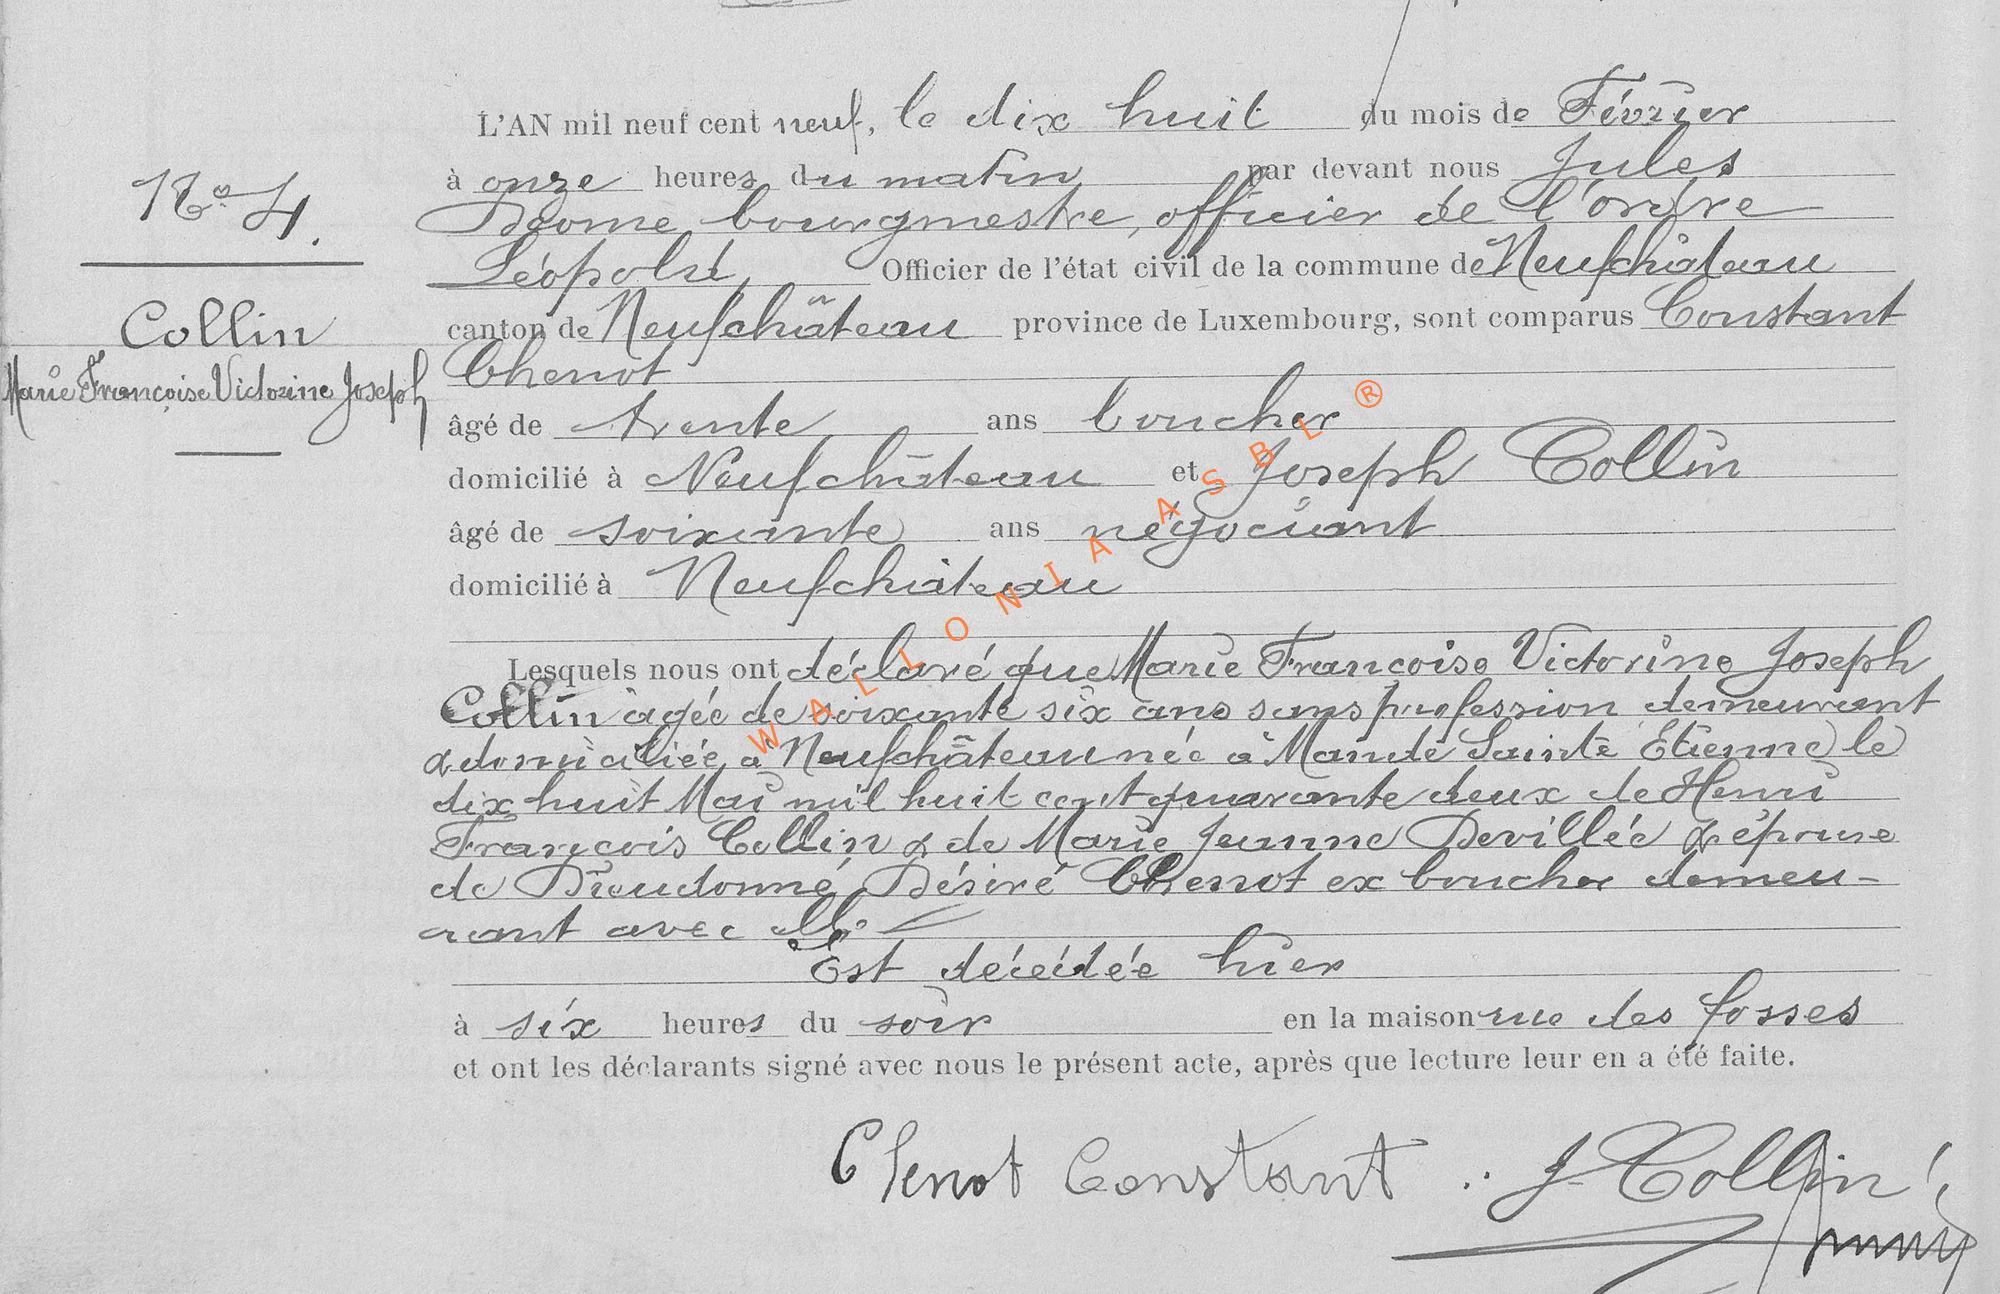 N° 4.
Collin
Marie Françoise Victorine Joseph
L'AN mil neuf cent neuf, le dix huit du mois de Février
à onze heures du matin par devant nous Jules
Deome bourgmestre, officier de l'ordre
Léopold, Officier de l'état civil de la commune de Neufchâteau
canton de Neufchâteau province de Luxembourg, sont comparus Constant
Chenot
âgé de trente ans boucher
domicilié à Neufchâteau et Joseph Collin
âgé de soixante ans négociant
domicilié à Neufchâteau
Lesquels nous ont déclaré que Marie Françoise Victorine Joseph
Collin âgée de soixante six ans sans profession demeurant
& domiciliée à Neufchâteau née à Mande Sainte Etienne le
dix huit Mai mil huit cent quarante deux de Henri
François Collin & de Marie Jeanne Devillée & épouse
de Dieudonné Désiré Chenot ex boucher demeu-
rant avec elle
Est décédée hier
à six heures du soir en la maison rue des fosses
et ont les déclarants signé avec nous le présent acte, après que lecture leur en a été faite.
Chenot Constant J. Collin
WALLONIA ASBL ®